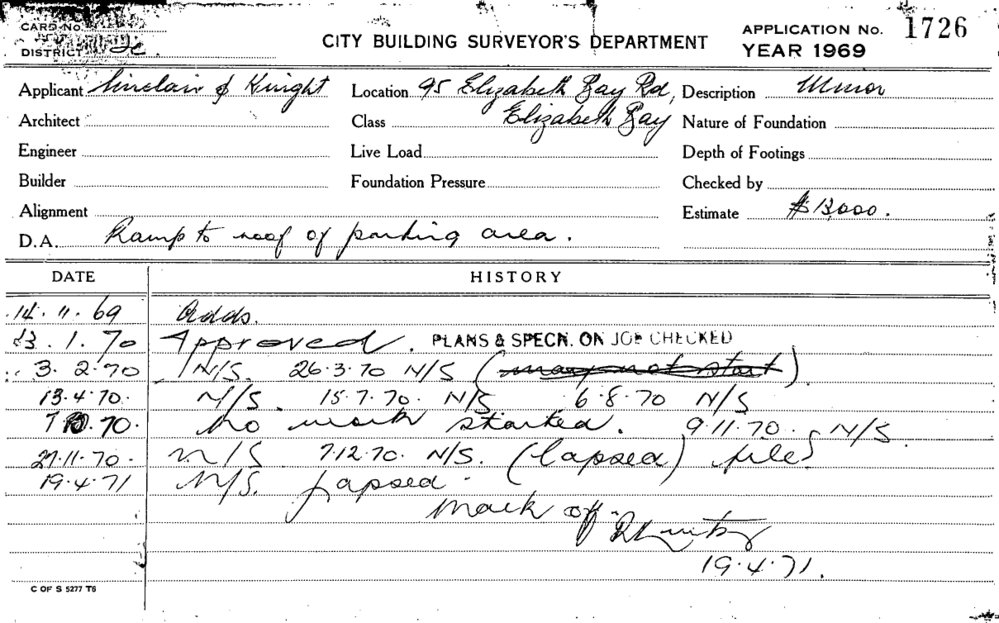 CARD No.
DISTRICT
CITY BUILDING SURVEYOR'S DEPARTMENT
APPLICATION No. 1726
YEAR 1969
Applicant Sinclair & Knight Location 95 Elizabeth Bay Rd, Description Minor
Architect Class Elizabeth Bay Nature of Foundation
Engineer Live Load Depth of Footings
Builder Foundation Pressure Checked by
Alignment Estimate $13,000.
D.A. Ramp to roof of parking area.
DATE HISTORY
14.11.69 Adds.
13.1.70 Approved. PLANS & SPECN. ON JOB CHECKED
3.2.70 N/S. 26.3.70 N/S (may not start).
13.4.70. N/S. 15.7.70. N/S 6.8.70 N/S
70. No work started. 9.11.70. N/S.
27.11.70. N/S 7.12.70. N/S. (lapsed) file
19.4.71 N/S. Lapsed.
Mark off
19.4.71.
C OF S 5277 T6